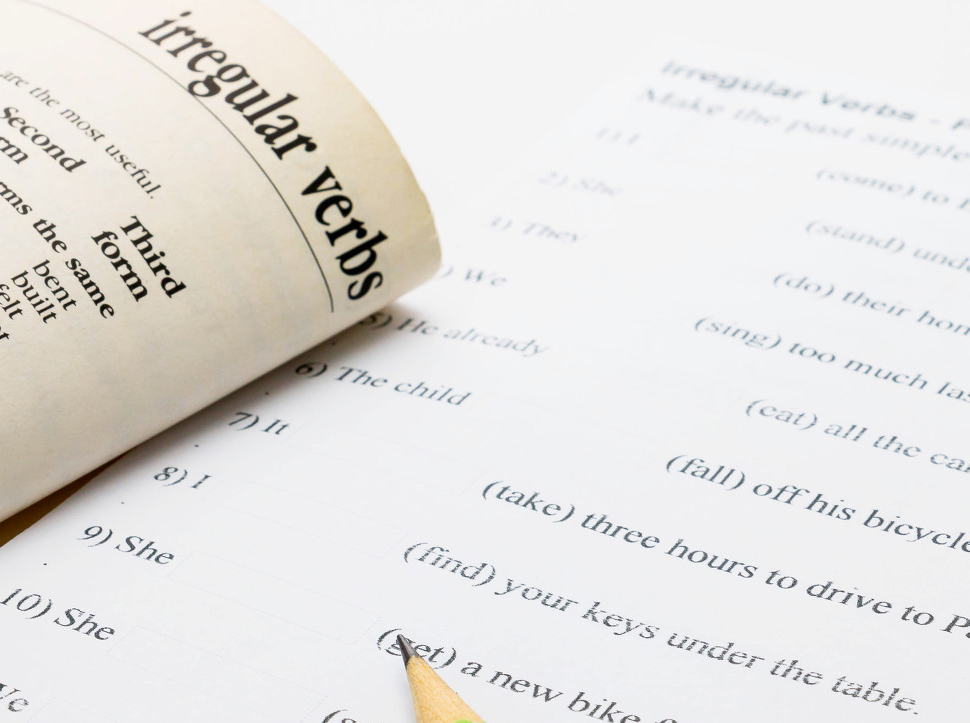 irregular verbs
are the most useful.
Second
Third
form
the same
bent
built
felt
Irregular Verbs -
Make the past simple
1) I (come) to
2) She (stand)
3) They (do) their
) We (sing) too much
5) He already (eat) all the
6) The child (fall) off his bicycle
7) It (take) three hours to drive to
8) I (find) your keys under the table.
9) She (get) a new bike
10) She